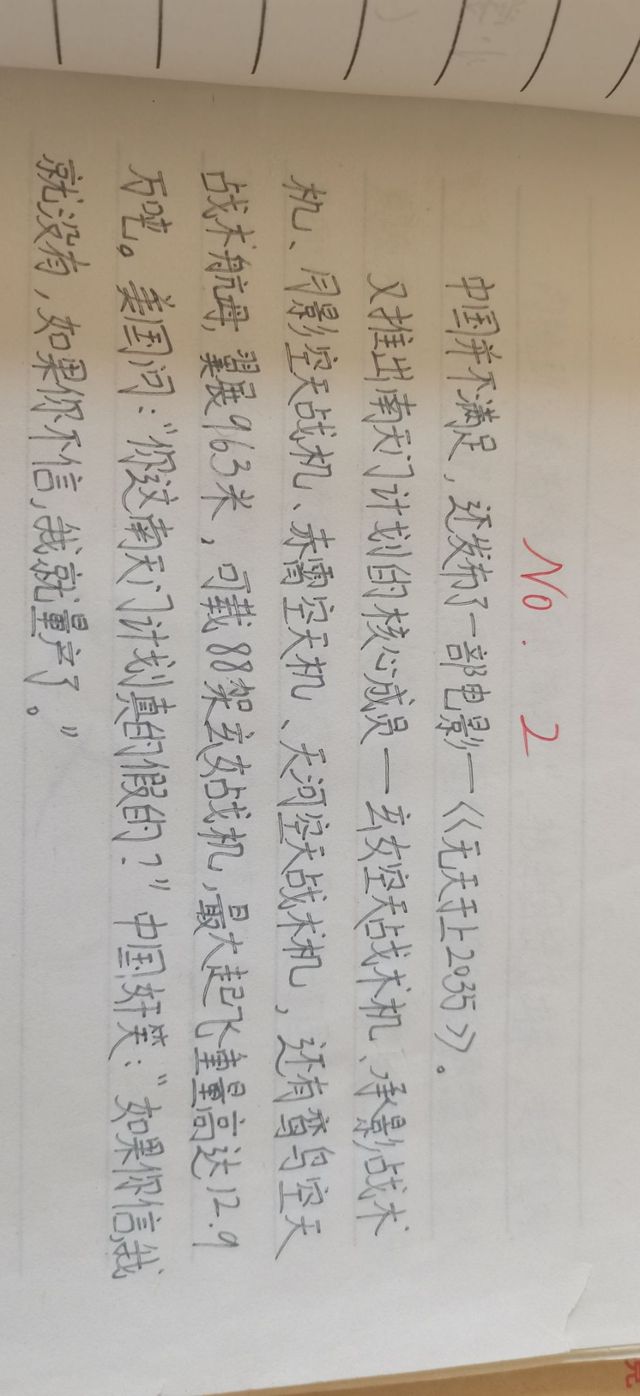 No. 2
中国并不满足，还发布了一部电影—《无天手上2035》。
又推出南天门计划的核心成员—玄女空天战术机、承影战术
机、月影空天战机、赤霄空天机、天河空天战术机，还有鸾鸟空天
战术航母，翼展963米，可载88架玄女战机，最大起飞重量高达12.9
万吨。美国问：“你这南天门计划真的假的？”中国奸笑：“如果你信，我
就没有，如果你不信，我就量产了。”